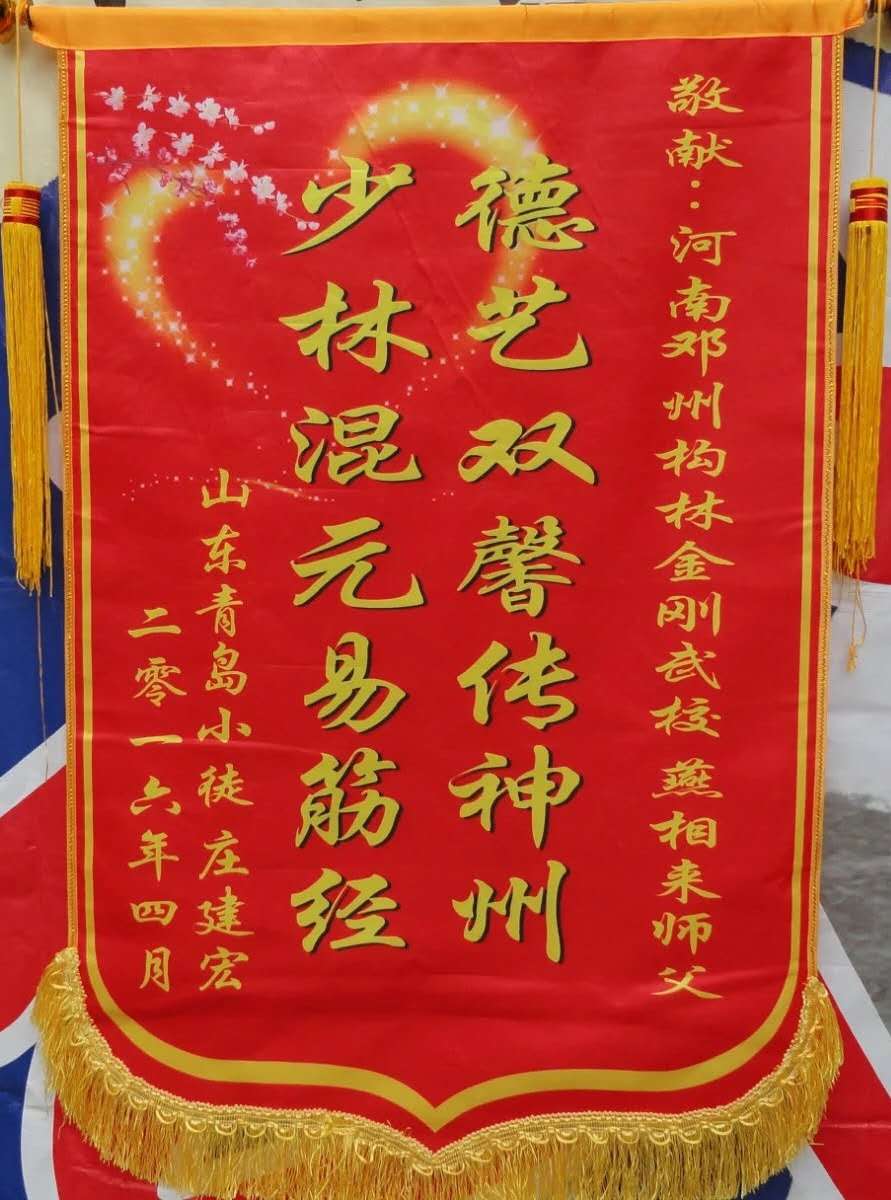 敬献：河南邓州构林金刚武校 燕相来师父
德艺双馨传神州
少林混元易筋经
山东青岛小徒 庄建宏
二零一六年四月